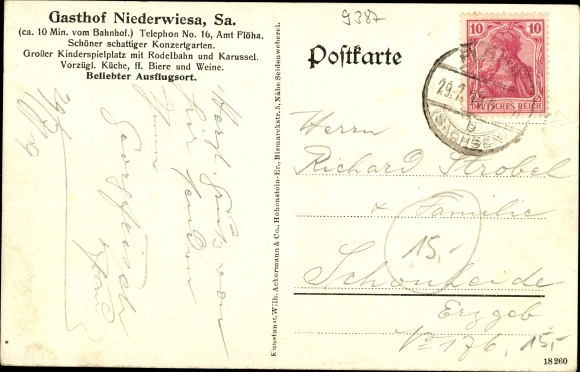 Gasthof Niederwiesa, Sa.
(ca. 10 Min. vom Bahnhof.) Telephon No. 16, Amt Flöha.
Schöner schattiger Konzertgarten.
Großer Kinderspielplatz mit Rodelbahn und Karussel.
Vorzügl. Küche, ff. Biere und Weine.
Beliebter Ausflugsort.
9387
Postkarte
10 10
DEUTSCHES REICH
29.7.
SACHSEN
Kunstanst. Wilh. Ackermann & Co., Hohenstein-Er., Bismarckstr. 5, Nähe Seidenweberei.
Herrn
Richard Strobel
& Familie
15,-
Schönheide
Erzgeb
176, 15,-
18260
Herzl. Grüße von